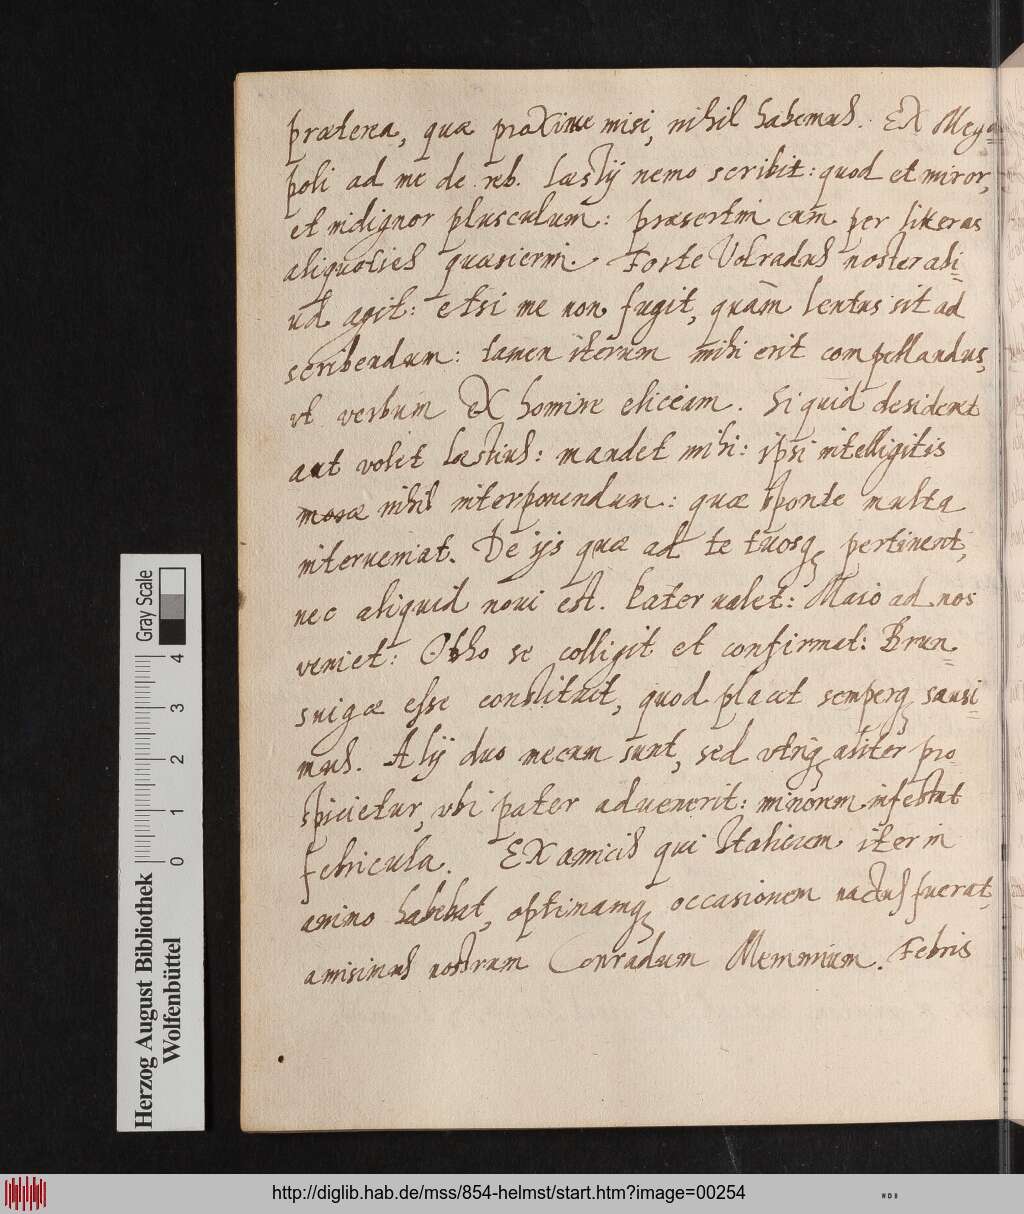 præterea, quæ proxime misi, nihil habemus. Ex Mega=
poli ad me de reb. Læstij nemo scribit: quod et miror,
et indignor plusculum: præsertim cum per litteras
aliquoties quæsierim. Forte Volradus noster ali=
ud agit: etsi me non fugit, quàm lentus sit ad
scribendum: tamen iterum mihi erit compellandus,
vt verbum ex homine eliceam. Si quid desideret
aut volet Læstius: mandet mihi: ipsi intelligitis
moræ nihil interponendum: quæ sponte multa
interueniat. De ijs quæ ad te tuosq; pertinent,
nec aliquid noui est. Pater valet: Maio ad nos
veniet: Otho se colligit et confirmat: Brun=
suigæ esse constituit, quod placet semperq; suasi=
mus. Alij duo mecum sunt, sed vtriq; aliter pro=
spicietur, vbi pater aduenerit: minorem infestat
febricula. Ex amicis qui Italicum iter in
animo habebat, optimamq; occasionem nactus fuerat,
amisimus nostrum Conradum Memmium. Febris
Herzog August Bibliothek
Wolfenbüttel
Gray Scale
0 1 2 3 4
http://diglib.hab.de/mss/854-helmst/start.htm?image=00254